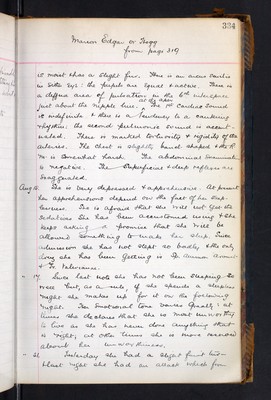 334
Marion Edgar or Twigg
from page 317
it most has a slight fur. There is an arcus senilis
in both eyes: the pupils are equal & active. There is
a diffuse area of pulsation in the 6th interspace
just about the nipple line. The 1st cardiac sound
at the apex
is indefinite & there is a tendency to a cantering
rhythm: the second pulmonic sound is accent-
uated. There is marked tortuosity & rigidity of the
arteries. The chest is slightly barrel shaped & the R.
M is somewhat harsh. The abdominal examination
is negative. The superficial & deep reflexes are
exaggerated.
Aug 15. She is very depressed & apprehensive. At present
her apprehensions depend on the fact of her sleep-
lessness. She is afraid that she will not get the
sedatives she has been accustomed to & she
keeps asking a promise that she will be
allowed something to make her sleep. Since
admission she has not slept so badly & the only
drug she has been getting is
- 17. Since last note she has not been sleeping so
well but, as a rule, if she spends a sleepless
night she makes up for it on the following
night. The emotional tone varies greatly: at
times she declares that she is most unworthy
to live as she has never done anything that
is right, at other times she is more reserved
about her unworthiness.
- 21. Yesterday she had a slight
last night she had an attack which from